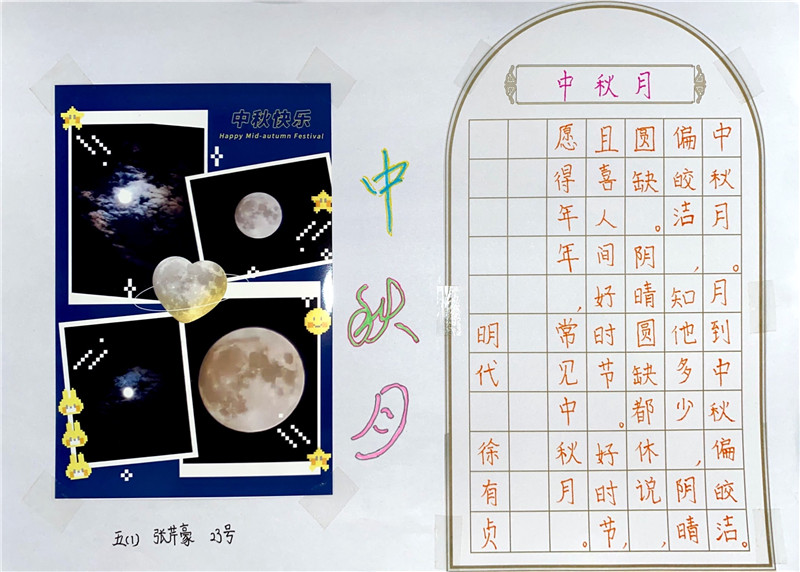 中秋快乐
Happy Mid-autumn Festival
中秋月
五(1) 张芹豪 23号
中秋月
中秋月。月到中秋偏皎洁。
偏皎洁，知他多少，阴晴
圆缺。阴晴圆缺都休说，
且喜人间好时节。好时节，
愿得年年，常见中秋月。
明代 徐有贞